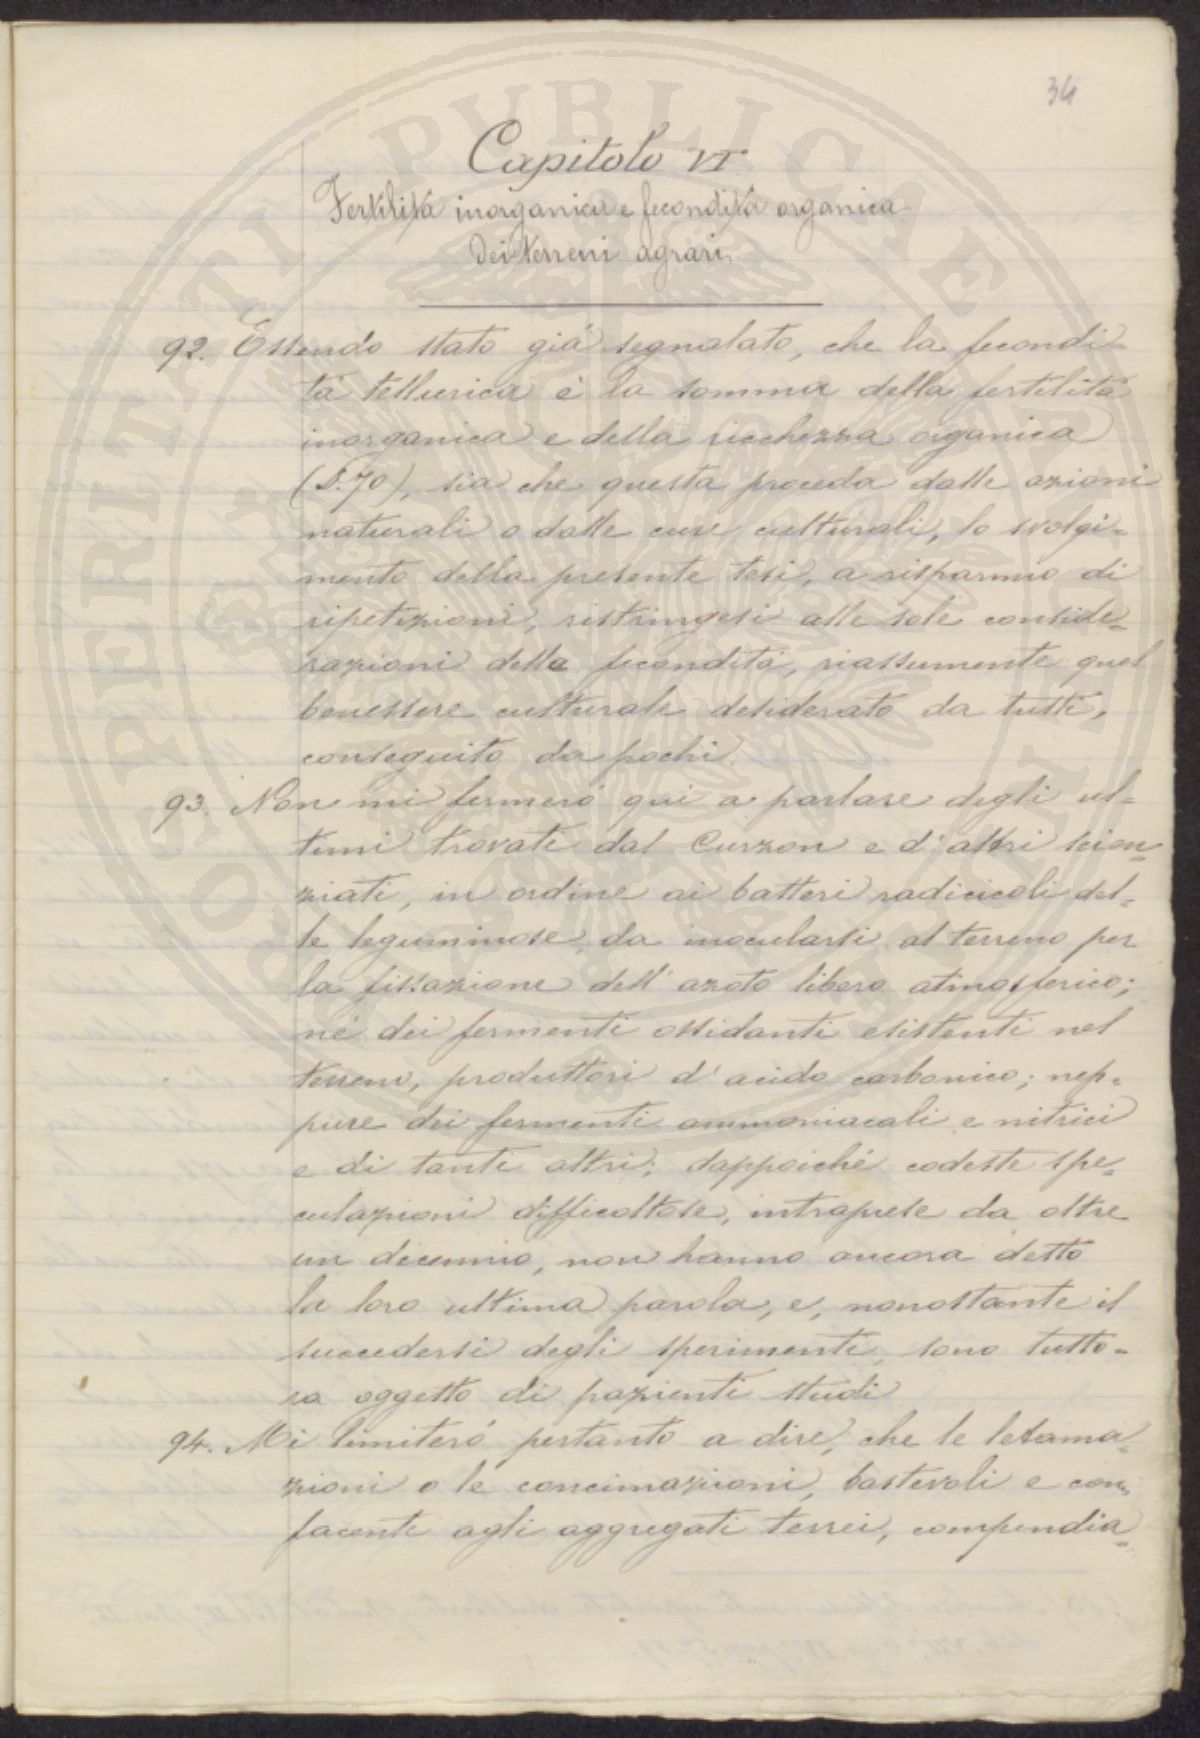 34
Capitolo VI
Fertilità inorganica e fecondità organica
dei terreni agrari
92. Essendo stato già segnalato, che la fecondi-
tà tellurica è la somma della fertilità
inorganica e della ricchezza organica
(§.70), sia che questa proceda dalle azioni
naturali o dalle cure culturali, lo svolgi-
mento della presente tesi, a risparmio di
ripetizioni, ristringesi alle sole conside-
razioni della fecondità, riassumente quel
benessere culturale desiderato da tutti,
conseguito da pochi.
93. Non mi fermerò qui a parlare degli ul-
timi trovati dal Curzon e d'altri scien-
ziati, in ordine ai batteri radicicoli del-
le leguminose, da inocularsi al terreno per
la fissazione dell'azoto libero atmosferico;
nè dei fermenti ossidanti esistenti nel
terreno, produttori d'acido carbonico; nep-
pure dei fermenti ammoniacali e nitrici
e di tanti altri; dappoichè codeste spe-
culazioni difficoltose, intraprese da oltre
un decennio, non hanno ancora detto
la loro ultima parola, e, nonostante il
succedersi degli sperimenti, sono tutto-
ra oggetto di pazienti studi
94. Mi limiterò pertanto a dire, che le letama-
zioni o le concimazioni, bastevoli e con-
facenti agli aggregati terrei, compendia-
PROSPERITATI PUBLICAE AUGENDAE